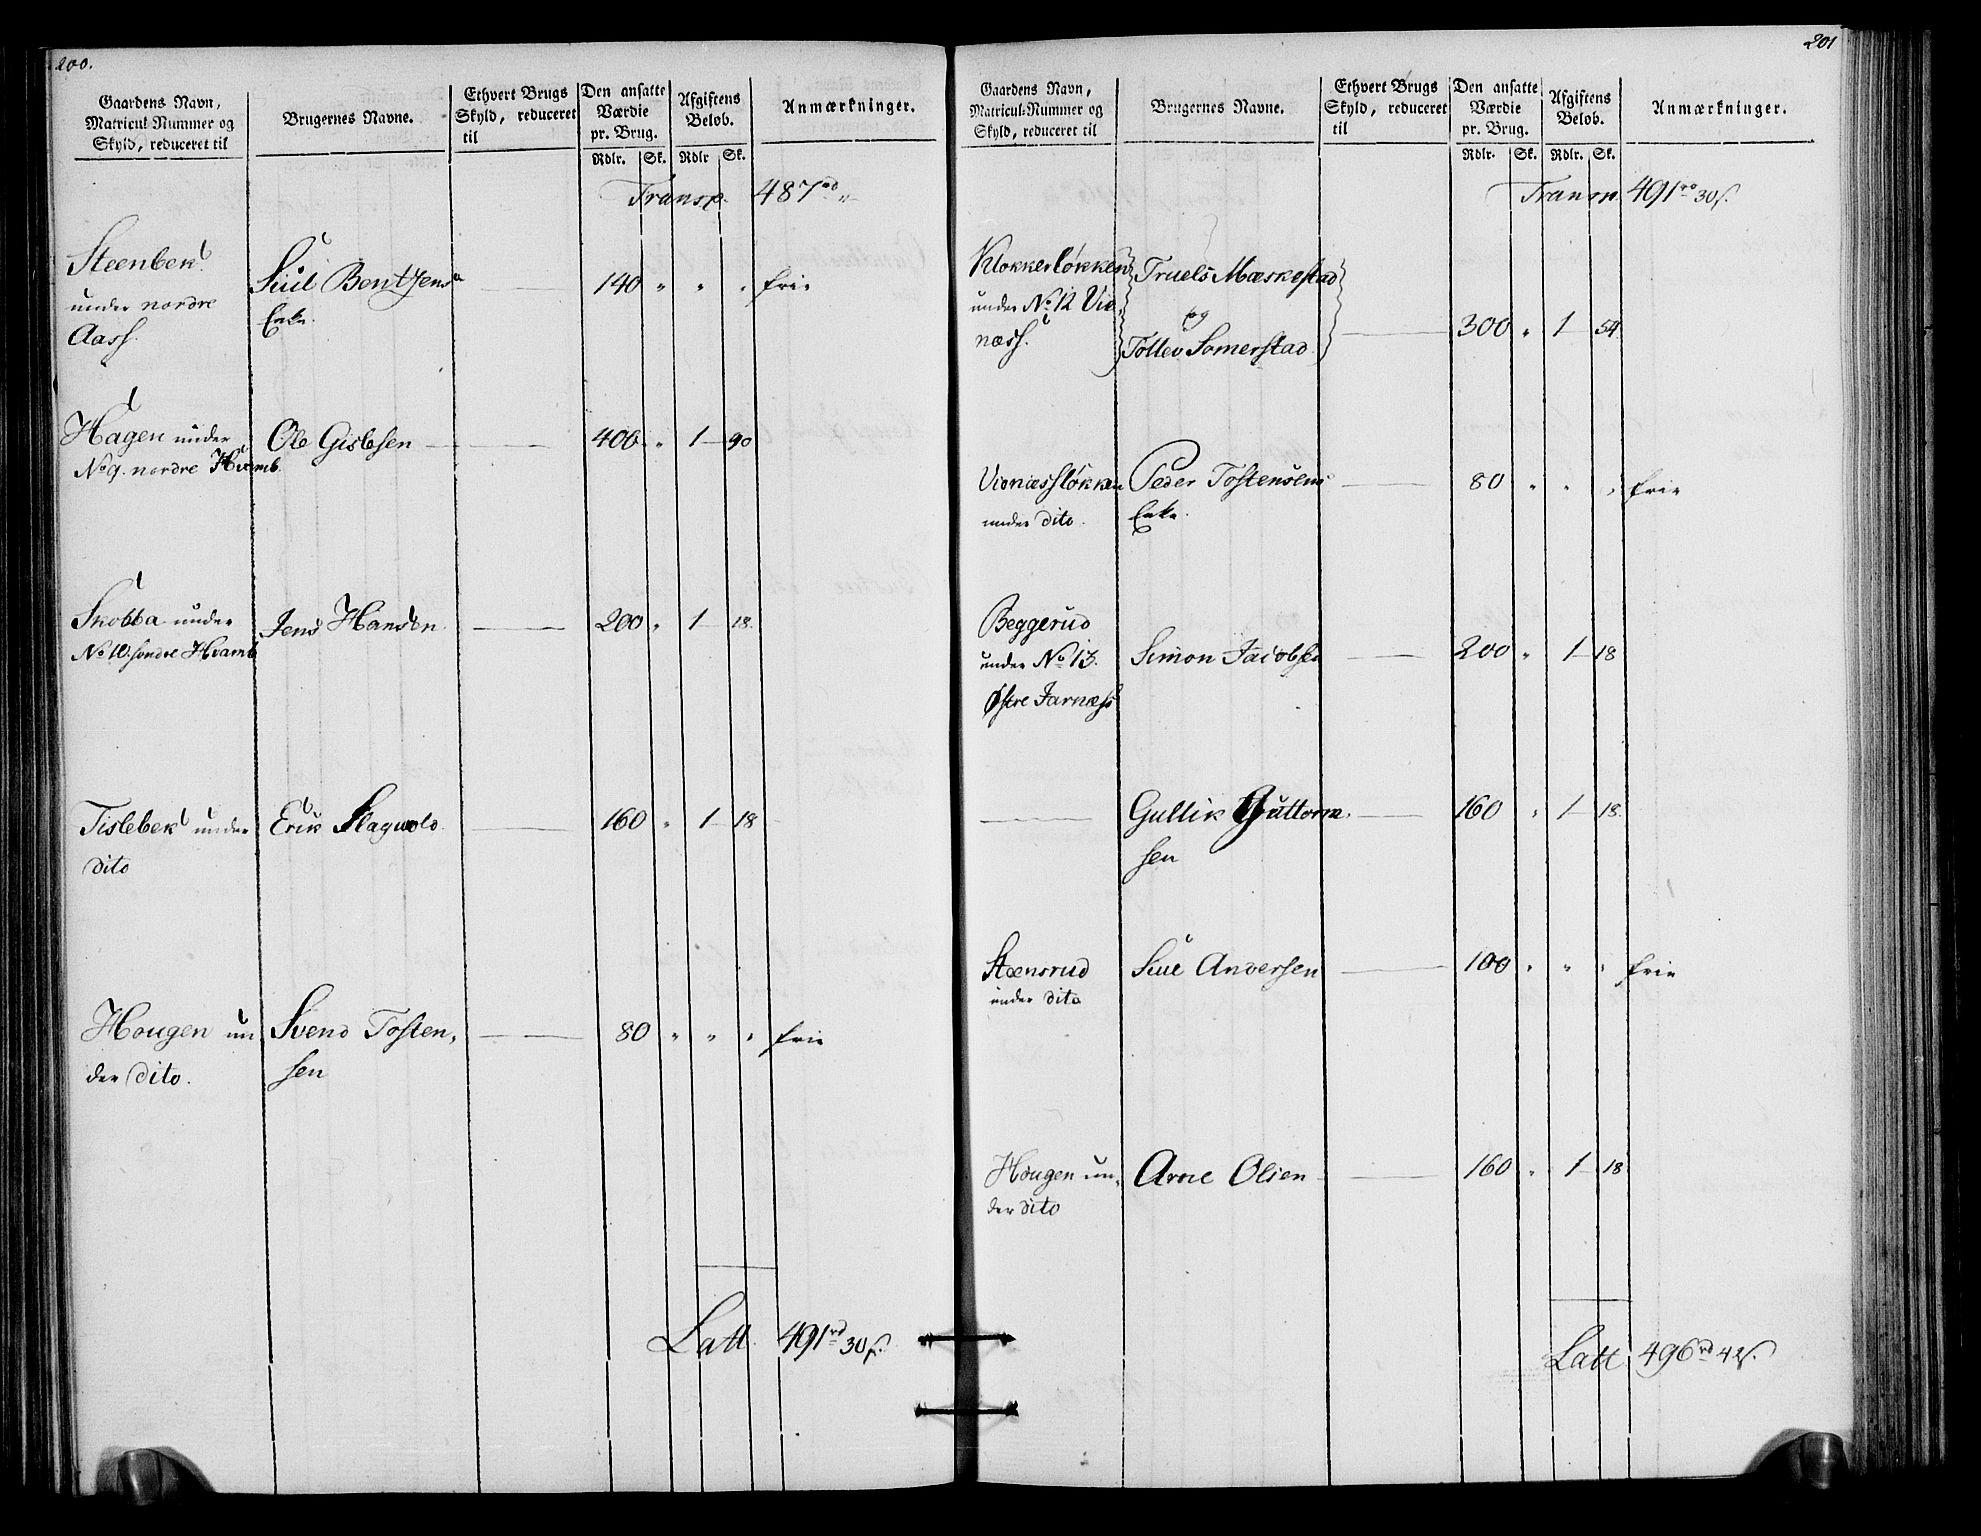 200.
Gaardens Navn,
Matricul-Nummer og
Skyld, reduceret til
Brugernes Navne.
Ethvert Brugs
Skyld, reduceret
til
Den ansatte
Værdie
pr. Brug.
Rdlr. Sk.
Afgiftens
Beløb.
Rdlr Sk.
Anmærkninger.
Transp. 487 rd "
Steenbek
under nordre
Aass.
Siul Bentsens
Enke.
140 " " " frie
Hagen under
No 9. nordre Hvamb
Ole Gislesen
400 " 1 90
Skobba under
No 10. søndre Hvamb
Jens Hansen
200 " 1 18.
Tislebek under
dito
Erik Slagvold
160 " 1 18
Hougen un
der dito.
Svend Tosten,
sen
80 " " " frie
Latt. 491 rd 30 s.
201
Gaardens Navn,
Matricul-Nummer og
Skyld, reduceret til
Brugernes Navne.
Ethvert Brugs
Skyld, reduceret
til
Den ansatte
Værdie
pr. Brug.
Rdlr. Sk.
Afgiftens
Beløb.
Rdlr. Sk.
Anmærkninger.
Transp. 491 rd 30 s.
Klokkerløkken
under No 12 Vid,
næss.
Truels Mæskestad
og
Tollev Somerstad
300 " 1 54
Vidnæssløkken
under dito.
Peder Tostensens
Enke.
80 " " " frie
Beggerud
under No 13.
Østre Jarnæss
Simon Jacobsen
200 " 1 18
Gullik Guttorm,
sen
160 " 1 18.
Steensrud
under dito
Siul Andersen
100 " " " frie
Hougen un,
der dito
Arne Olsen
160 " 1 18
Latt 496 rd 42 s.